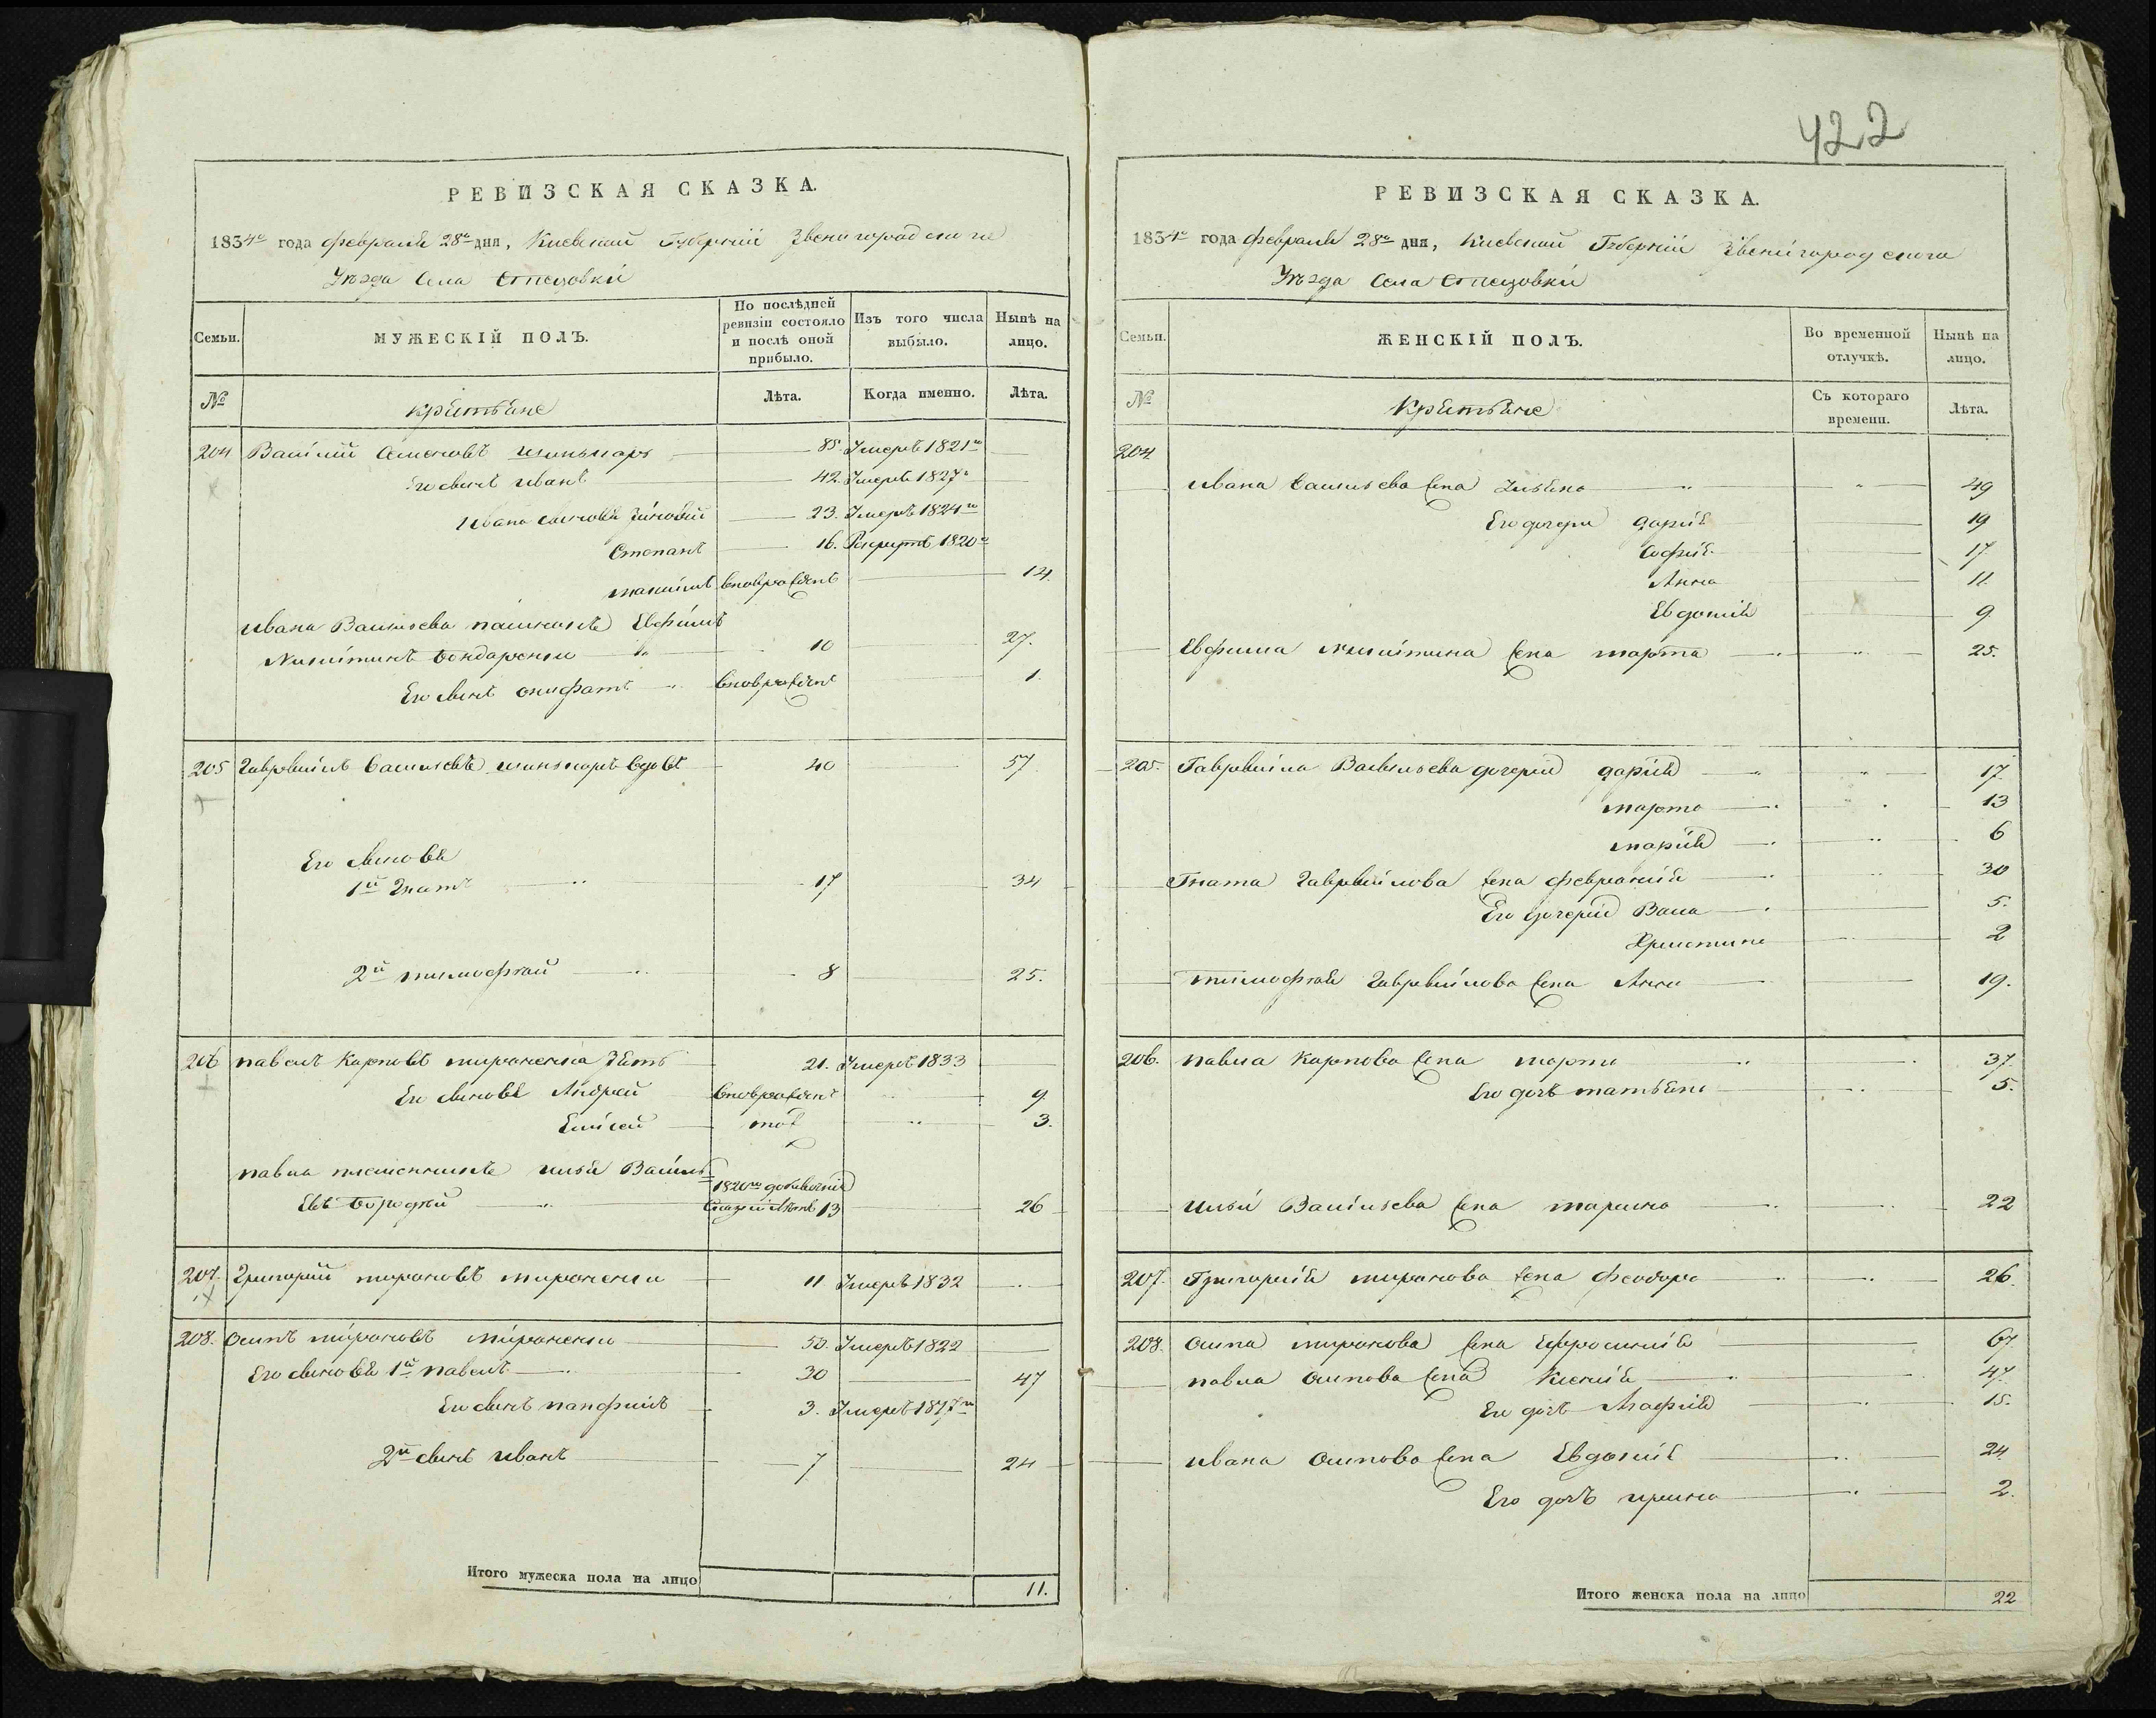 РЕВИЗСКАЯ СКАЗКА.
1834го года февраля 28го дня, Киевской Губернiи Звенигородского
Уѣзда Села Стецовки
Семьи. МУЖЕСКІЙ ПОЛЪ. По послѣдней ревизіи состояло и послѣ оной прибыло. Изъ того числа выбыло. Нынѣ на лицо.
№ Крестьяне Лѣта. Когда именно. Лѣта.
204 Василий Семеновъ 85. Умеръ 1821го
Его сынъ иванъ 42. Умеръ 1827го
ивана сыновья Зиновий 23. Умеръ 1824го
Степанъ 16. Рекрутъ 1820го
максимъ вновърожденъ 14.
ивана Васильева Евфимъ
Никитинъ бондаренко 10 27.
Его сынъ онифатъ вновърожденъ 1.
205 Гавриилъ васильевъ вдовъ 40 57
Его сыновья
1й Гнатъ 17 34
2й тимофѣй 8 25.
206 павелъ Карповъ мироненка Зять 21. Умеръ 1833
Его сыновья Андрей вновърожденъ 9
Елисей тожъ 3.
павла племянникъ илья Василь=
1820го
евъ бородѣй 13 26
207. Григорий мироновъ мироненко 11 Умеръ 1832
208. осипъ мироновъ мироненко 50. Умеръ 1822
Его сыновья 1й павелъ 30 47
Его сынъ панфилъ 3. Умеръ 1817го
2й сынъ иванъ 7 24
Итого мужеска пола на лицо 11.
422
РЕВИЗСКАЯ СКАЗКА.
1834го года февраля 28го дня, Киевской Губернiи Звенигородского
Уѣзда Села Стецовки
Семьи. ЖЕНСКІЙ ПОЛЪ. Во временной отлучкѣ. Нынѣ на лицо.
№ Крестьяне Съ котораго времени. Лѣта.
204
ивана васильева жена Ульяна 49
Его дочери дария 19
софия 17
Анна 11
Евдокия 9
Евфима никитина жена марта 25.
205. Гавриила Васильева дочери дария 17
марта 13
мария 6
Гната Гавриилова жена феврония 30
Его дочери Васа 5.
Христина 2
тимофѣя Гавриилова жена Анна 19.
206. павла Карпова жена марта 37
Его дочь татьяна 5.
ильи Васильева жена марина 22
207. Григория миронова жена феодора 26.
208. осипа миронова жена Ефросиния 67
павла осипова жена Ксения 47.
Его дочь Агафия 15.
ивана осипова жена Евдокия 24.
Его дочь ирина 2.
Итого женска пола на лицо 22